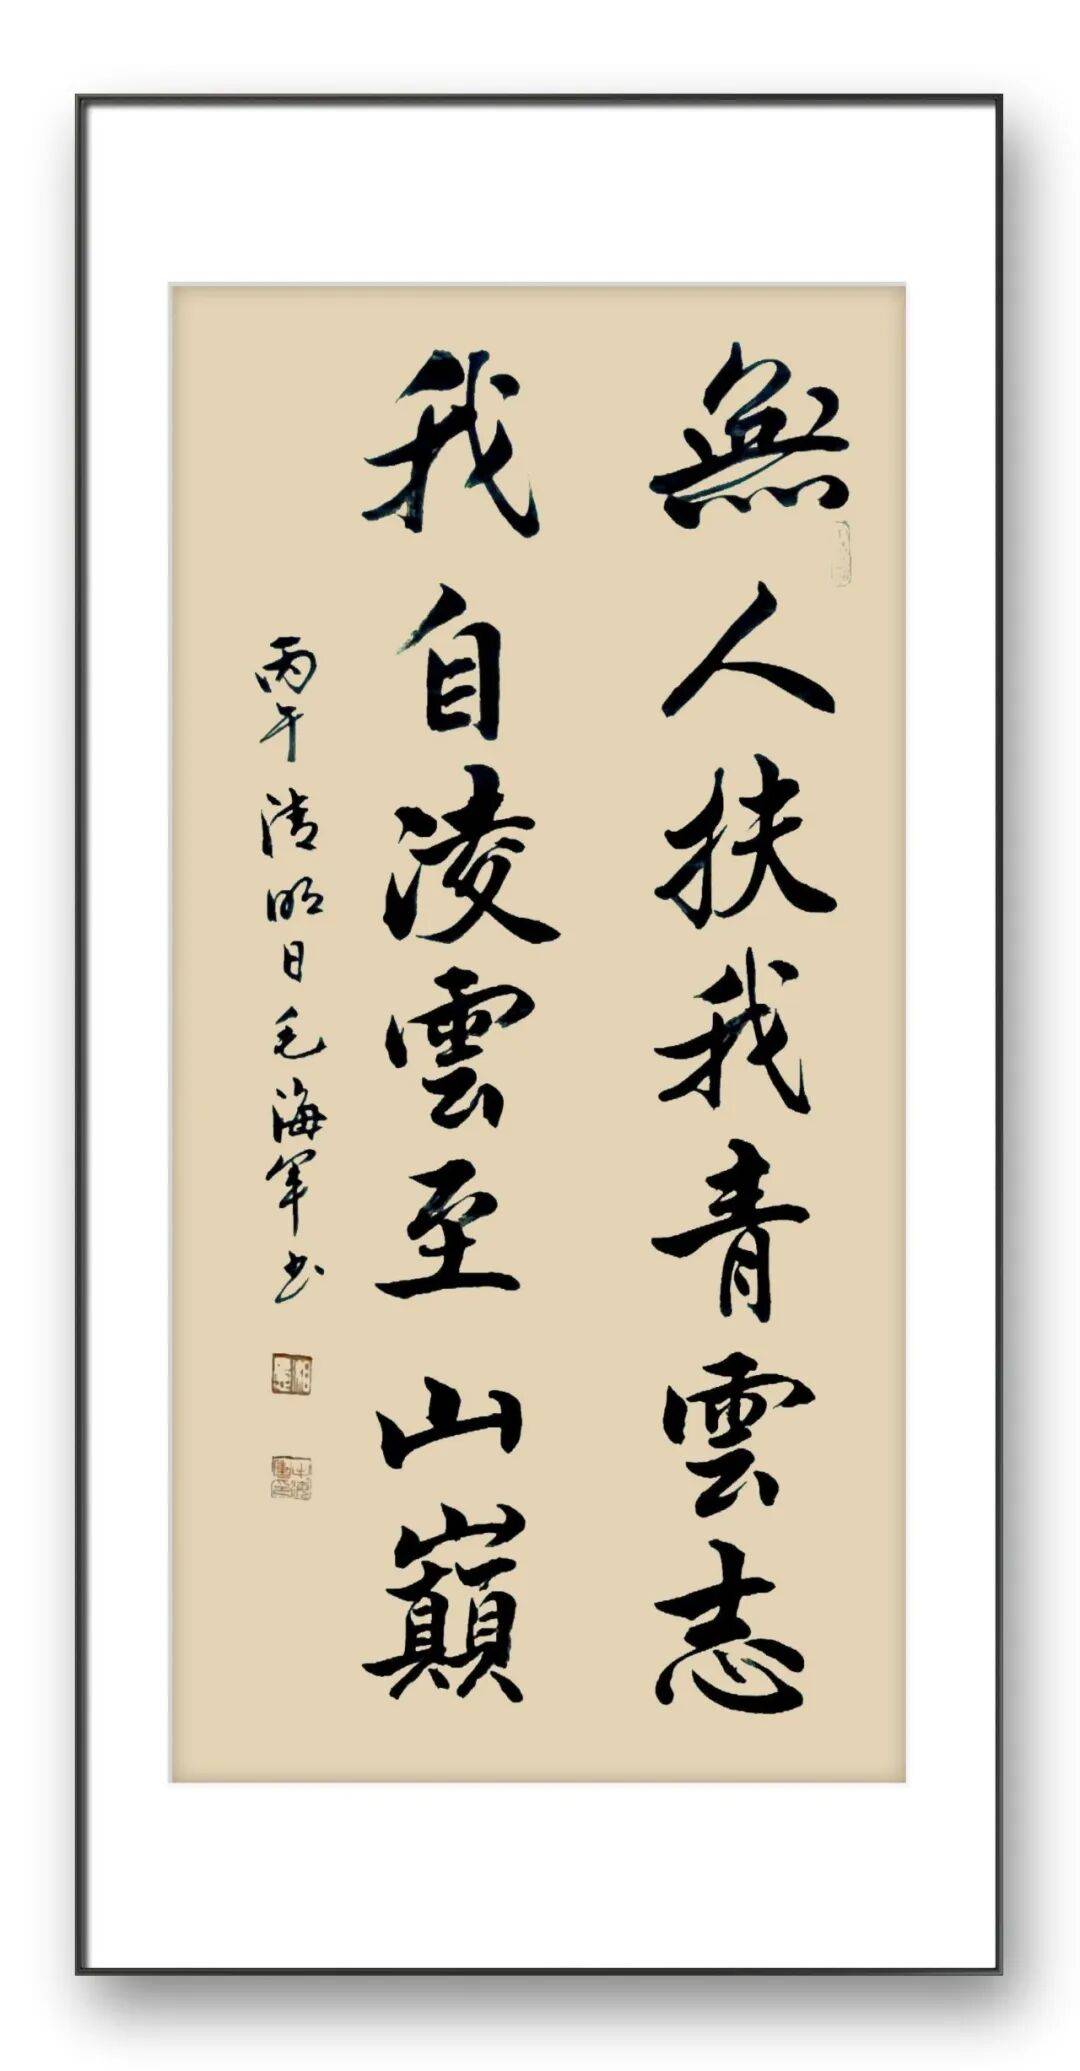 無人扶我青雲志
我自淩雲至山巔
丙午清明日毛海軍书